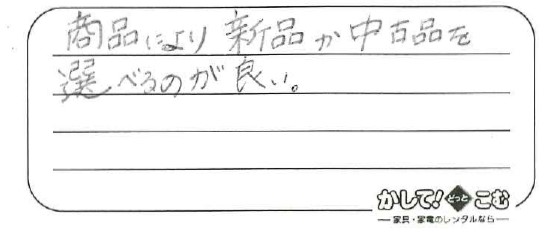 商品により新品か中古品を
選べるのが良い。
かして!どっとこむ
家具・家電のレンタルなら